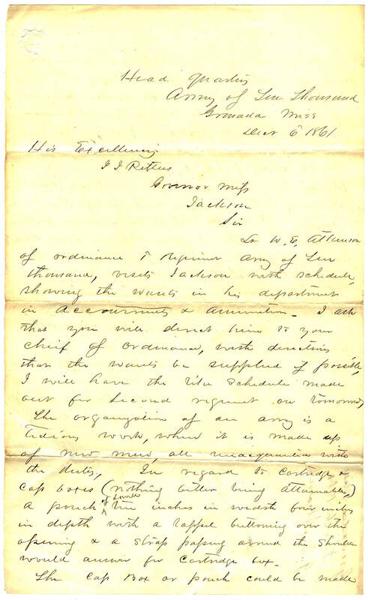 Head Quarters
Army of Ten Thousand
Grenada Miss
Decr 6 1861
His Excellency
J J Pettus
Governor Miss
Jackson
Sir
Lt W. E. Atkinson
of ordinance 1 Regiment Army of Ten
thousand, visits Jackson with schedule,
showing the wants in his department
in Accoutrments & amunition. I ask
that you will direct him to your
chief of Ordinance, with directions
that the wants be supplied if possible,
I will have the like schedule made
out for Second regiment on tomorrow
The organization of an army is a
tedious work, when it is made up
of new men, all unacquainted with
the duties, In regard to cartridge &
cap boxes (nothing better being attainable,)
a pouch of in width four inches
in depth with a lappel buttoning over the
opening & a strap passing around the shoulder
would answer for cartridge box.
The Cap Box or pouch could be made